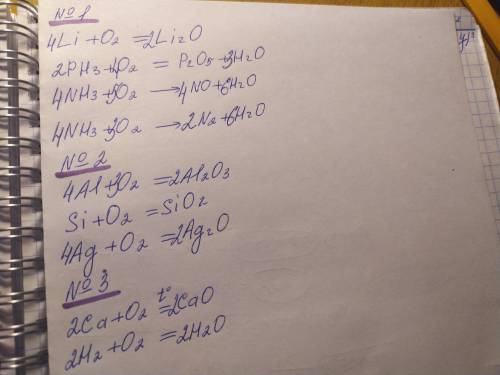 №1
4Li + O₂ = 2Li₂O
2PH₃ + 4O₂ = P₂O₅ + 3H₂O
4NH₃ + 5O₂ → 4NO + 6H₂O
4NH₃ + 3O₂ → 2N₂ + 6H₂O
№2
4Al + 3O₂ = 2Al₂O₃
Si + O₂ = SiO₂
4Ag + O₂ = 2Ag₂O
№3
2Ca + O₂ t° = 2CaO
2H₂ + O₂ = 2H₂O